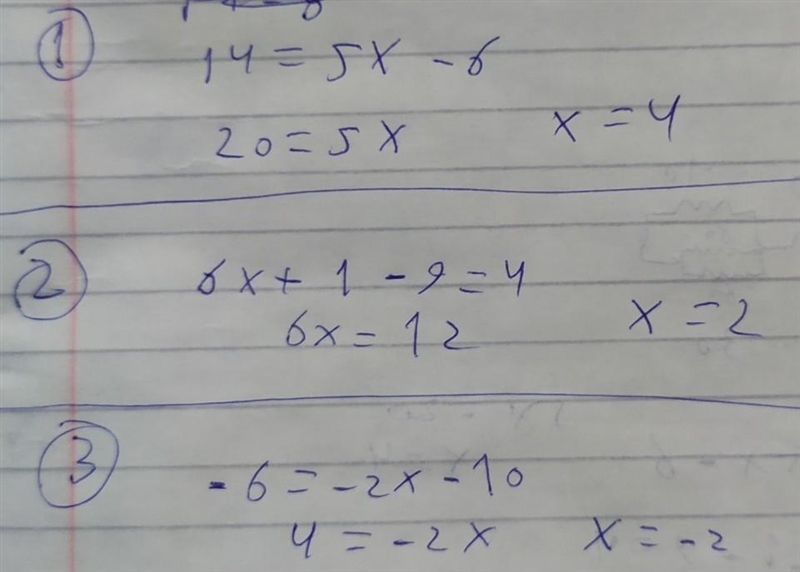 1
14 = 5x - 6
20 = 5x x = 4
2
6x + 1 - 9 = 4
6x = 12 x = 2
3
- 6 = -2x - 10
4 = -2x x = -2